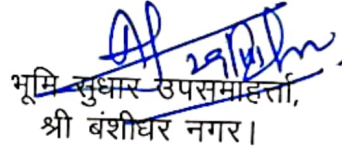 भूमि सुधार उपसमाहर्त्ता,
श्री बंशीधर नगर।